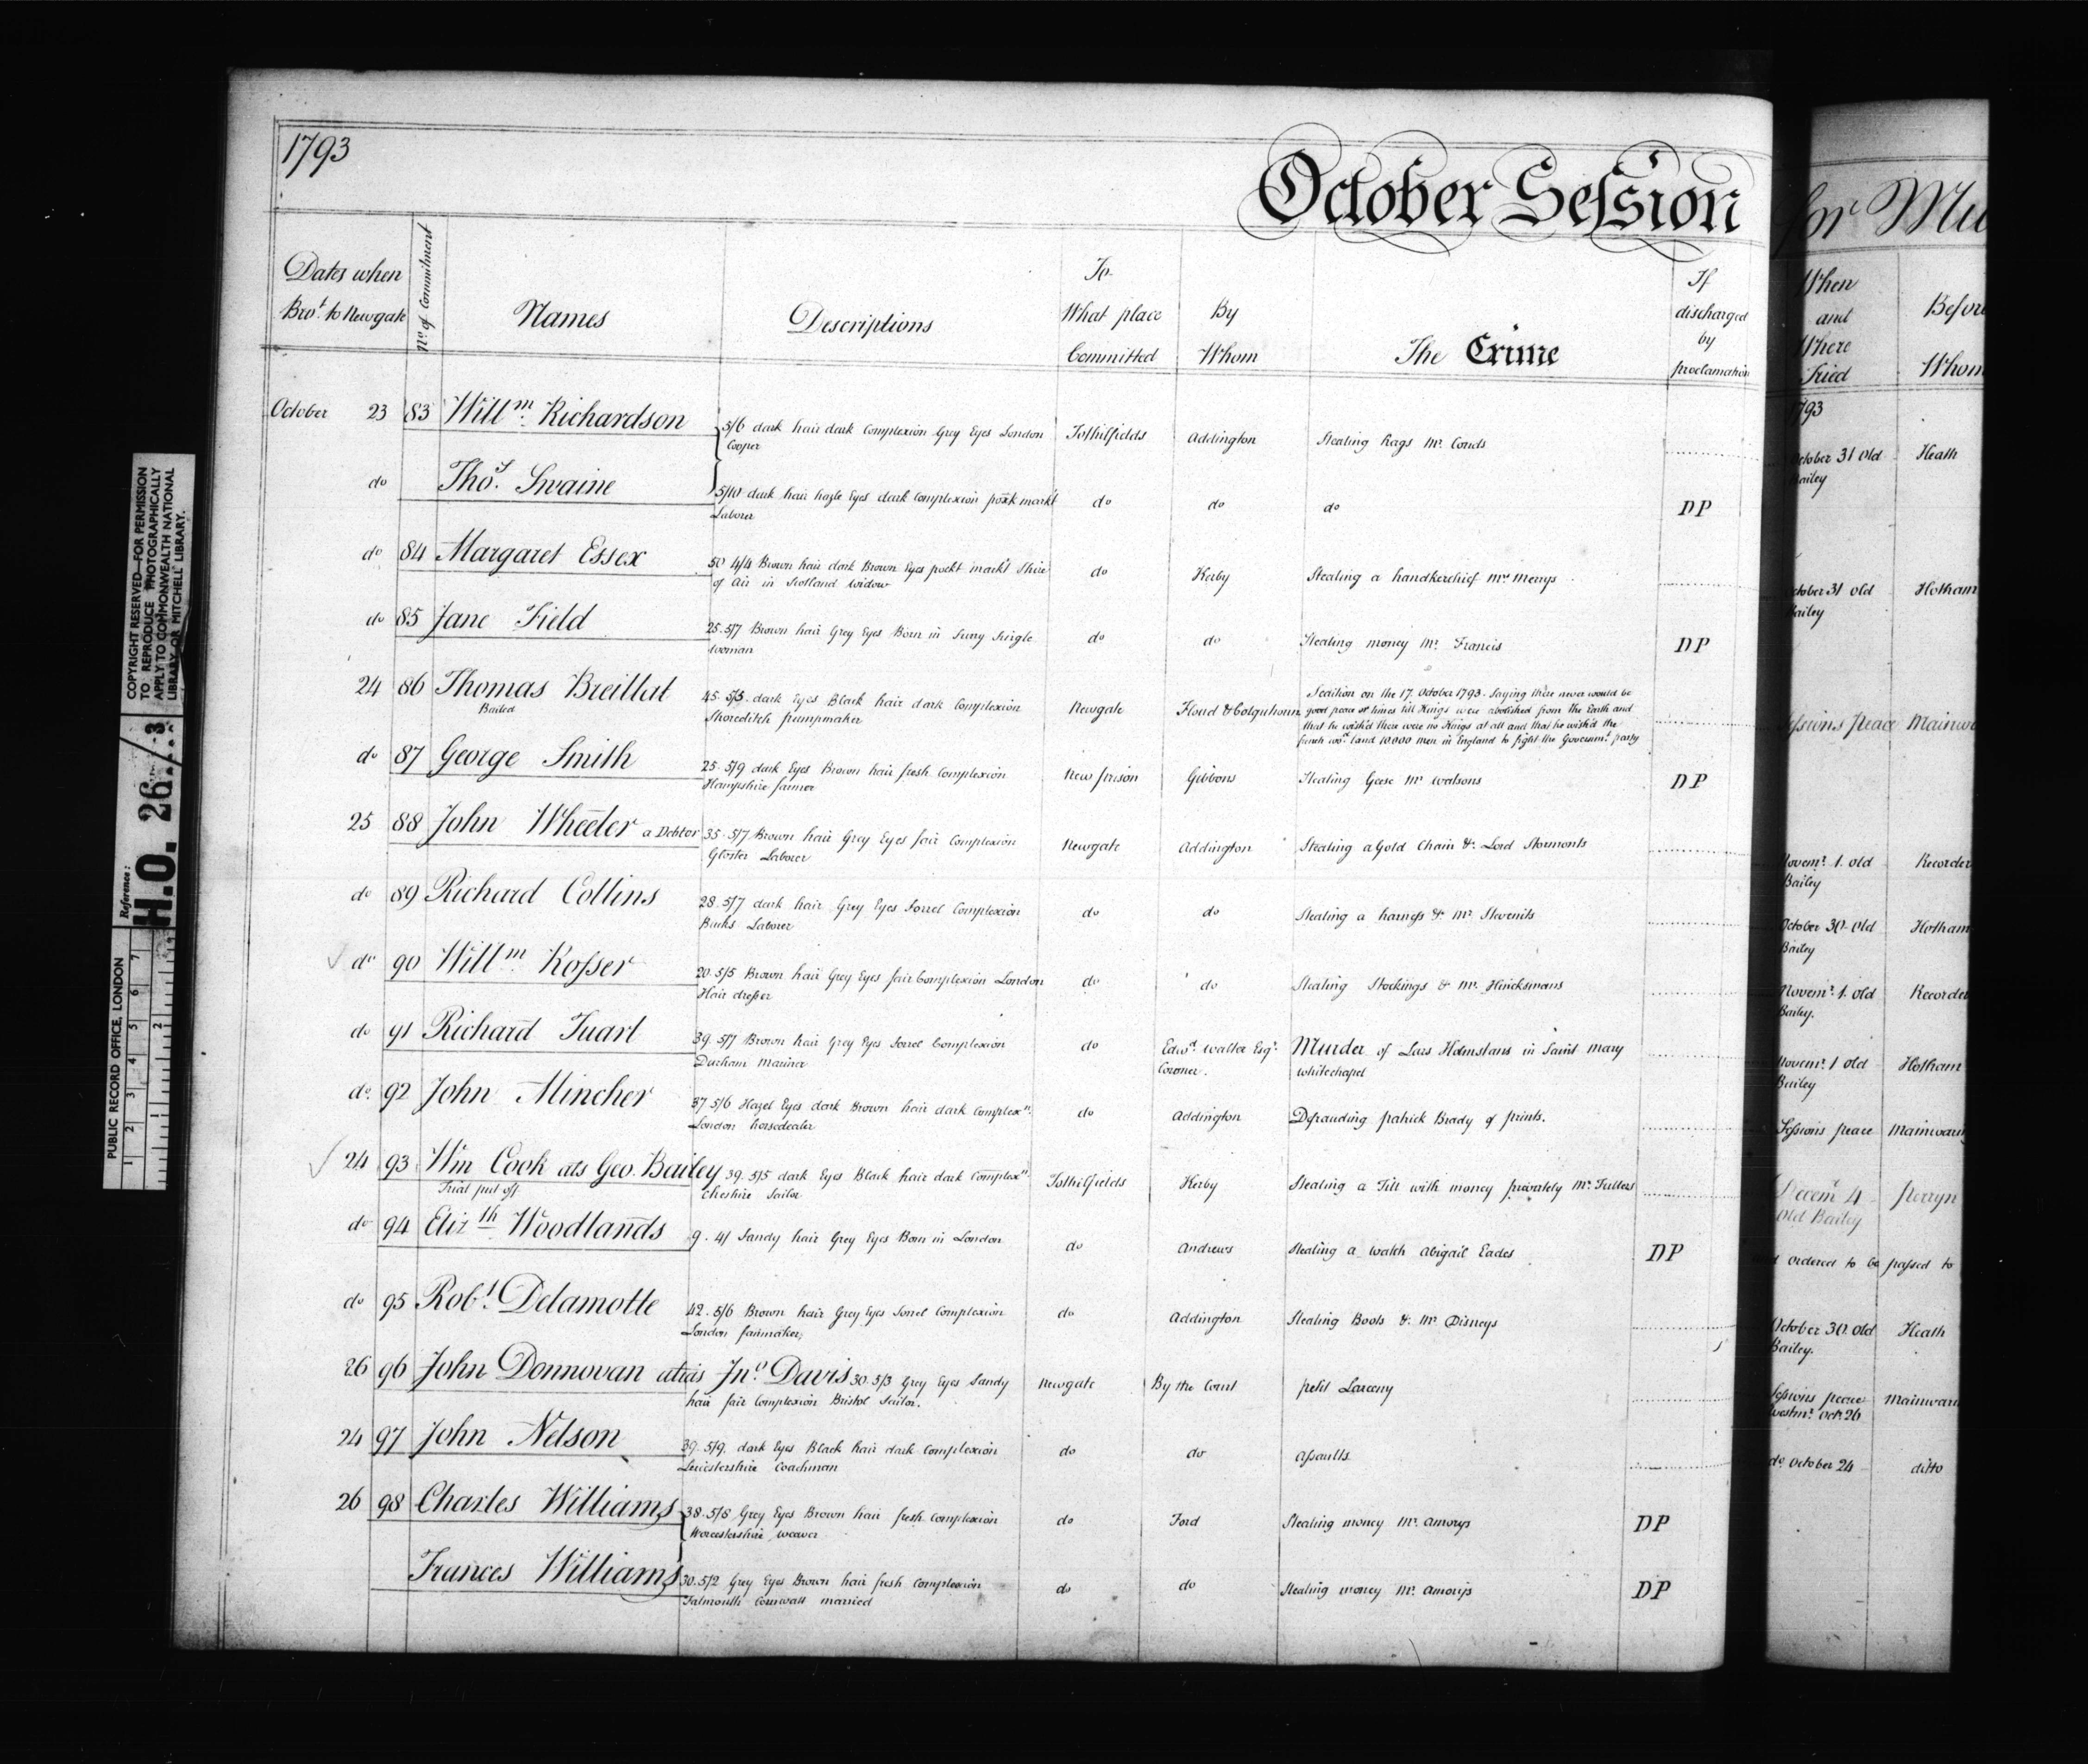 1793
October Session
for Mid
Dates when
Bro.t to Newgate
No. of Commitment
Names
Descriptions
To
What place
Committed
By
Whom
The Crime
If
discharged
by
proclamation
When
and
Where
Tried
Before
Whom
1793
October 23 83 Will.m Richardson 5/6 dark hair dark Complexion Grey Eyes London Tothilfields Addington Stealing Rags Mr. Conds October 31 Old Heath
Cooper Bailey
do Tho.s Swaine 5/10 dark hair hazle Eyes dark Complexion pock mark't do do do DP
Laborer
do 84 Margaret Essex 50 4/4 Brown hair dark Brown Eyes pockt mark't Shire do Kerby Stealing a handkerchief Mrs Merrys October 31 old Hotham
of Air in Scotland widow Bailey
do 85 Jane Field 25. 5/7 Brown hair Grey Eyes Born in Surry Single do do Stealing money Mr. Francis DP
woman
24 86 Thomas Breillat 45. 5/3. dark Eyes Black hair dark Complexion Newgate Flood & Colquhoun Sedition on the 17. October 1793. Saying there never would be
Bailed Shoreditch pumpmaker good peace or times till Kings were abolished from the Earth and
that he wish'd there were no Kings at all and that he wish'd the Sessions peace Mainwa
french wo.d land 10.000 men in England to fight the Governm.t party
do 87 George Smith 25. 5/9 dark Eyes Brown hair fresh Complexion New prison Gibbons Stealing Geese Mr Watsons DP
Hampshire farmer
25 88 John Wheeler a Debtor 35. 5/7 Brown hair Grey Eyes fair Complexion Newgate Addington Stealing a Gold Chain &c Lord Stormonts Novem.r 1. old Recorder
Gloster Laborer Bailey
do 89 Richard Collins 28. 5/7 dark hair Grey Eyes Sorrel Complexion do do Stealing a harness &c Mr. Stevenits October 30. old Hotham
Bucks Laborer Bailey
do 90 Will.m Rosser 20. 5/5 Brown hair Grey Eyes fair Complexion London do do Stealing Stockings &c Mr. Hincksmans Novem.r 1. old Recorder
Hair dresser Bailey.
do 91 Richard Tuart 39. 5/7 Brown hair Grey Eyes Sorrel Complexion do Edw.d Walter Esq.r Murder of Lars Holmstans in Saint Mary Novem.r 1 old Hotham
Durham Mariner Coroner. Whitechapel Bailey
do. 92 John Mincher 37 5/6 Hazel Eyes dark Brown hair dark Complex.n do Addington Defrauding patrick Brady of prints. Sessions peace Mainwaring
London horsedealer
24 93 Wm Cook als Geo. Bailey 39. 5/5 dark Eyes Black hair dark Complex.n Tothilfields Kerby Stealing a Till with money privately Mr. Fullers Decem.r 4 Perryn
Trial put off Cheshire Sailor Old Bailey
do 94 Eliz.th Woodlands 9. 4/ Sandy hair Grey Eyes Born in London do Andrews Stealing a watch Abigail Eades DP and ordered to be passed to
do 95 Rob.t Delamotte 42. 5/6 Brown hair Grey Eyes Sorrel Complexion do Addington Stealing Boots &c Mr Disneys October 30. old Heath
London fanmaker Bailey.
26 96 John Donnovan alias Jn.o Davis 30. 5/3 Grey Eyes Sandy Newgate By the Court petit Larceny Sessions peace Mainwari
hair fair Complexion Bristol Sailor. Westm.r Oct.r 26
24 97 John Nelson 39. 5/9. dark Eyes Black hair dark Complexion do do Assaults do October 24 ditto
Leicestershire Coachman
26 98 Charles Williams 38. 5/8 Grey Eyes Brown hair fresh Complexion do Ford Stealing money Mr. Amorys DP
Worcestershire weaver
Frances Williams 30. 5/2 Grey Eyes Brown hair fresh Complexion do do Stealing money Mr. Amorys DP
Falmouth Cornwall married
COPYRIGHT RESERVED—FOR PERMISSION
TO REPRODUCE PHOTOGRAPHICALLY
APPLY TO COMMONWEALTH NATIONAL
LIBRARY OR MITCHELL LIBRARY.
Reference:
H.O. 26/3
PUBLIC RECORD OFFICE, LONDON
1 2 3 4 5 6 7
1 2